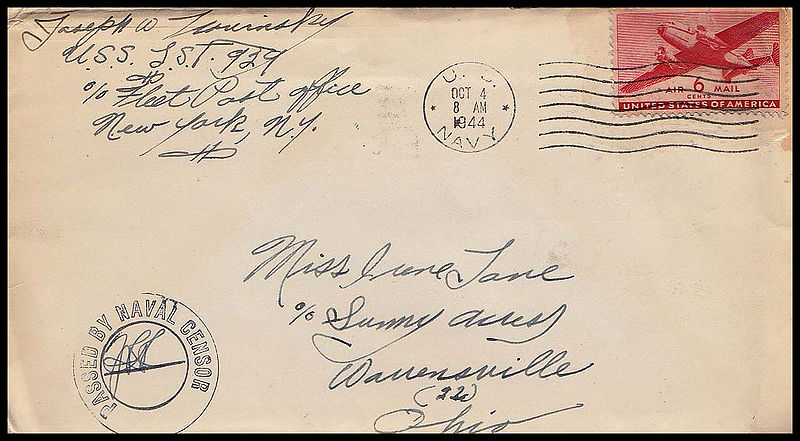 Joseph W.
U.S.S. L.S.T.
c/o Fleet Post office
New York, N.Y.
U. S.
OCT 4
8 AM
1944
NAVY
AIR 6 MAIL
CENTS
UNITED STATES OF AMERICA
Miss Irene Lane
c/o Sunny Acres
Warrensville
(22)
Ohio
PASSED BY NAVAL CENSOR